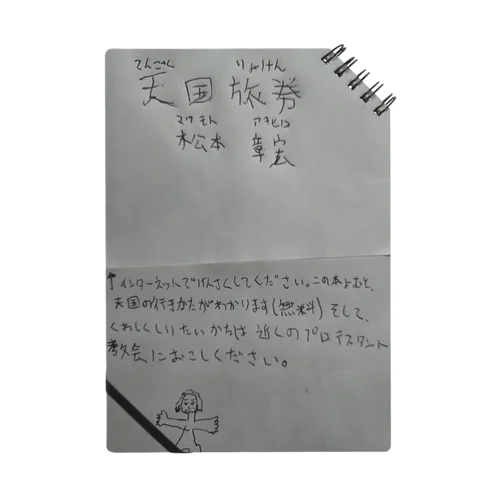 てんごく りょけん
天国旅券
マツモト アキヒロ
松本 章宏
↑インターネットでけんさくしてください。この本よむと、
天国の行きかたがわかります(無料)そして、
くわしくしりたいかたは 近くのプロテスタント
教会におこしください。